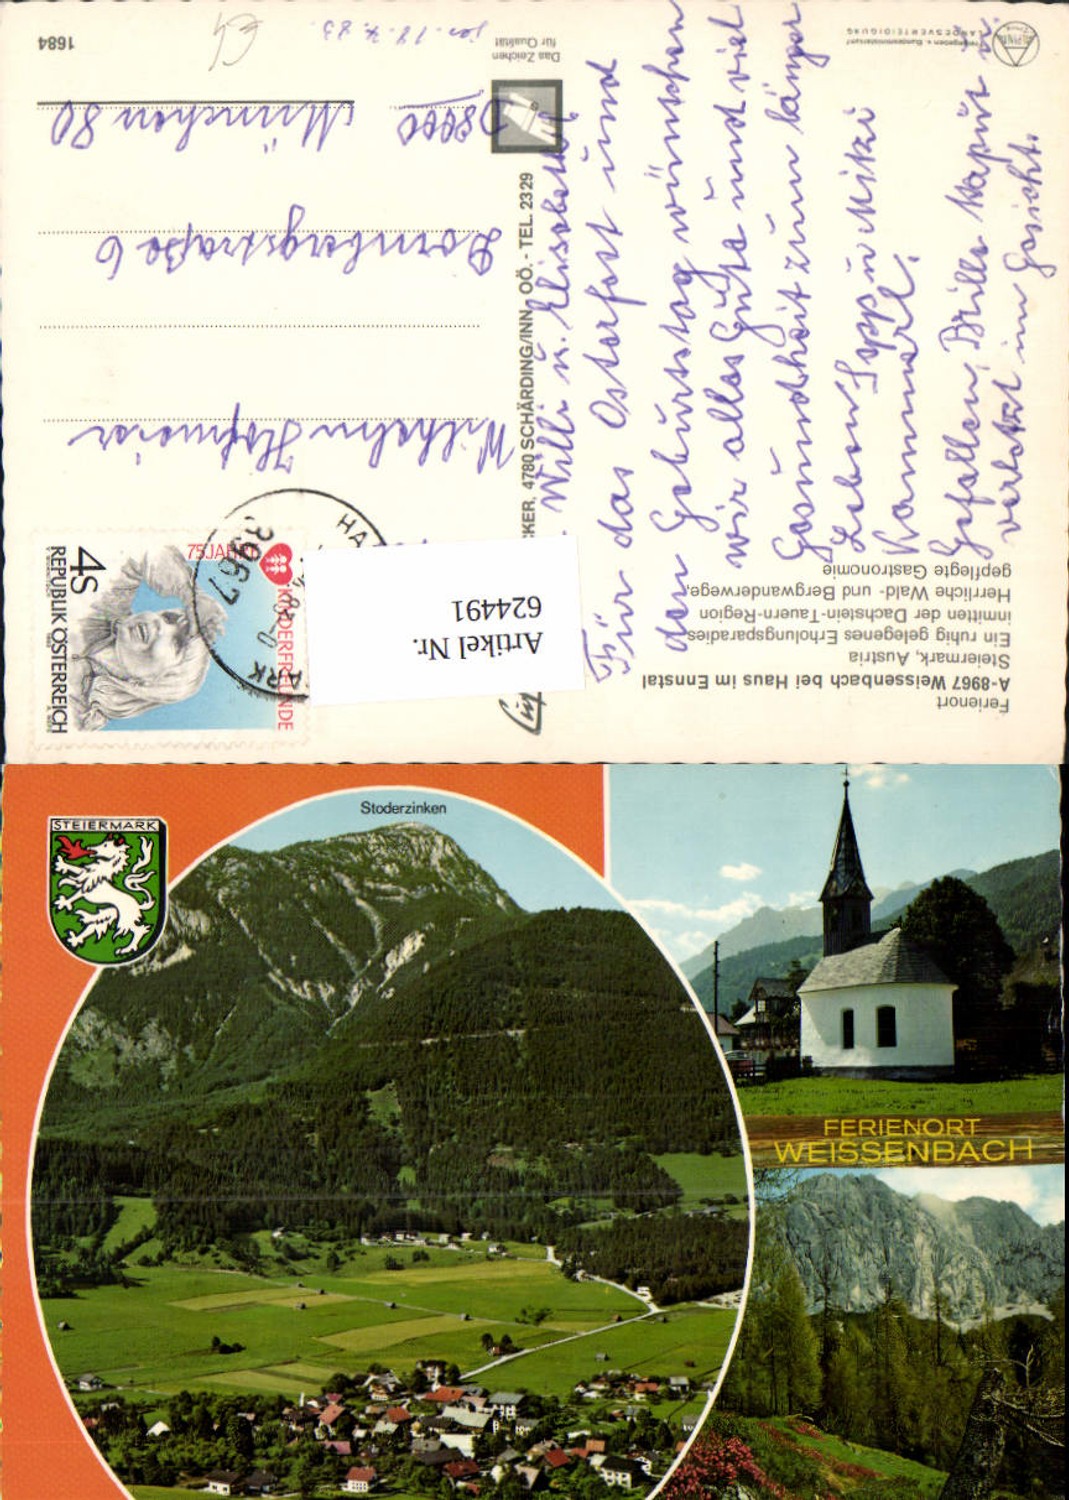 Ferienort
A-8967 Weissenbach bei Haus im Ennstal
Steiermark, Austria
Ein ruhig gelegenes Erholungsparadies
inmitten der Dachstein-Tauern-Region
Herrliche Wald- und Bergwanderwege,
gepflegte Gastronomie
Willi u. Elisabeth!
Für das Osterfest und
den Geburtstag wünschen
wir alles Gute und viel
Gesundheit zum länger
Leben Sepp u Mitzi
Gefallen, Brille kaput u.
verletzt im Gesicht.
CKER, 4780 SCHÄRDING/INN, OÖ. - TEL. 2329
Das Zeichen
für Qualität
LANDESVERTEIDIGUNG
REPUBLIK ÖSTERREICH
4S
75 JAHRE
KINDERFREUNDE
8967
Artikel Nr.
624491
Wilhelm Hofmeier
6
D8000 München 80
1684
STEIERMARK
Stoderzinken
FERIENORT
WEISSENBACH